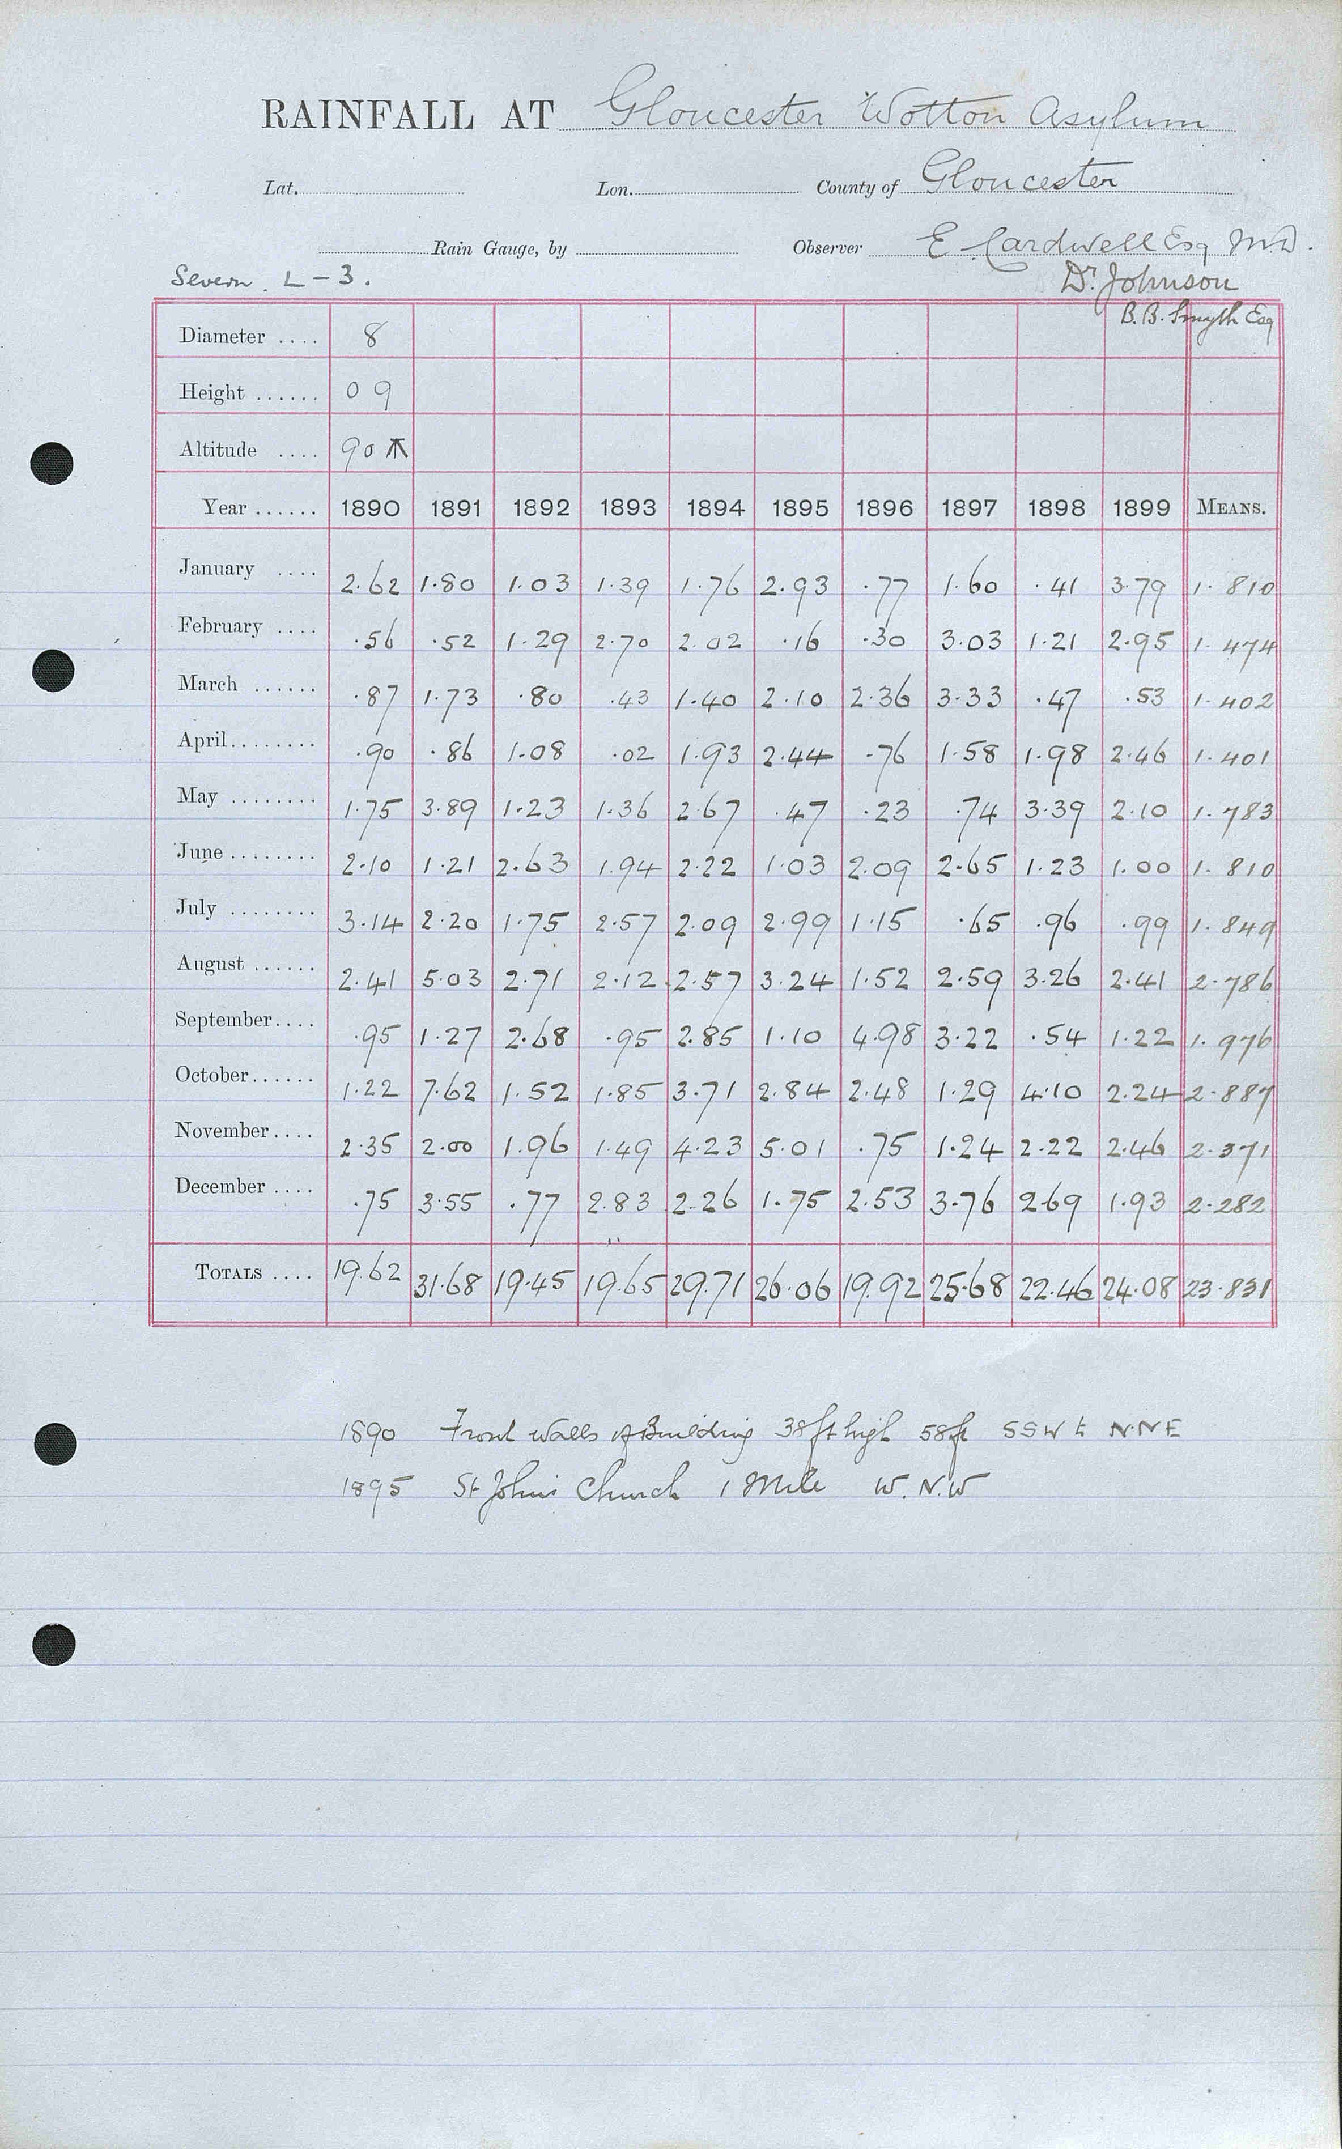 RAINFALL AT Gloucester Wotton Asylum
Lat. Lon. County of Gloucester
Rain Gauge, by Observer E. Cardwell Esq M.D.
Severn L-3. Dr. Johnson
B.B. Smyth Esq
Diameter .... 8
Height ...... 0 9
Altitude .... 90
Year ...... 1890 1891 1892 1893 1894 1895 1896 1897 1898 1899 MEANS.
January .... 2.62 1.80 1.03 1.39 1.76 2.93 .77 1.60 .41 3.79 1.810
February .... .56 .52 1.29 2.70 2.02 .16 .30 3.03 1.21 2.95 1.474
March ...... .87 1.73 .80 .43 1.40 2.10 2.36 3.33 .47 .53 1.402
April ........ .90 .86 1.08 .02 1.93 2.44 .76 1.58 1.98 2.46 1.401
May ........ 1.75 3.89 1.23 1.36 2.67 .47 .23 .74 3.39 2.10 1.783
June ........ 2.10 1.21 2.63 1.94 2.22 1.03 2.09 2.65 1.23 1.00 1.810
July ........ 3.14 2.20 1.75 2.57 2.09 2.99 1.15 .65 .96 .99 1.849
August ...... 2.41 5.03 2.71 2.12 2.57 3.24 1.52 2.59 3.26 2.41 2.786
September .... .95 1.27 2.68 .95 2.85 1.10 4.98 3.22 .54 1.22 1.976
October ...... 1.22 7.62 1.52 1.85 3.71 2.84 2.48 1.29 4.10 2.24 2.887
November .... 2.35 2.00 1.96 1.49 4.23 5.01 .75 1.24 2.22 2.46 2.371
December .... .75 3.55 .77 2.83 2.26 1.75 2.53 3.76 2.69 1.93 2.282
TOTALS .... 19.62 31.68 19.45 19.65 29.71 26.06 19.92 25.68 22.46 24.08 23.831
1890 Front walls of Building 38ft high 58ft SSW to N.NE
1895 St Johns Church 1 Mile W.N.W